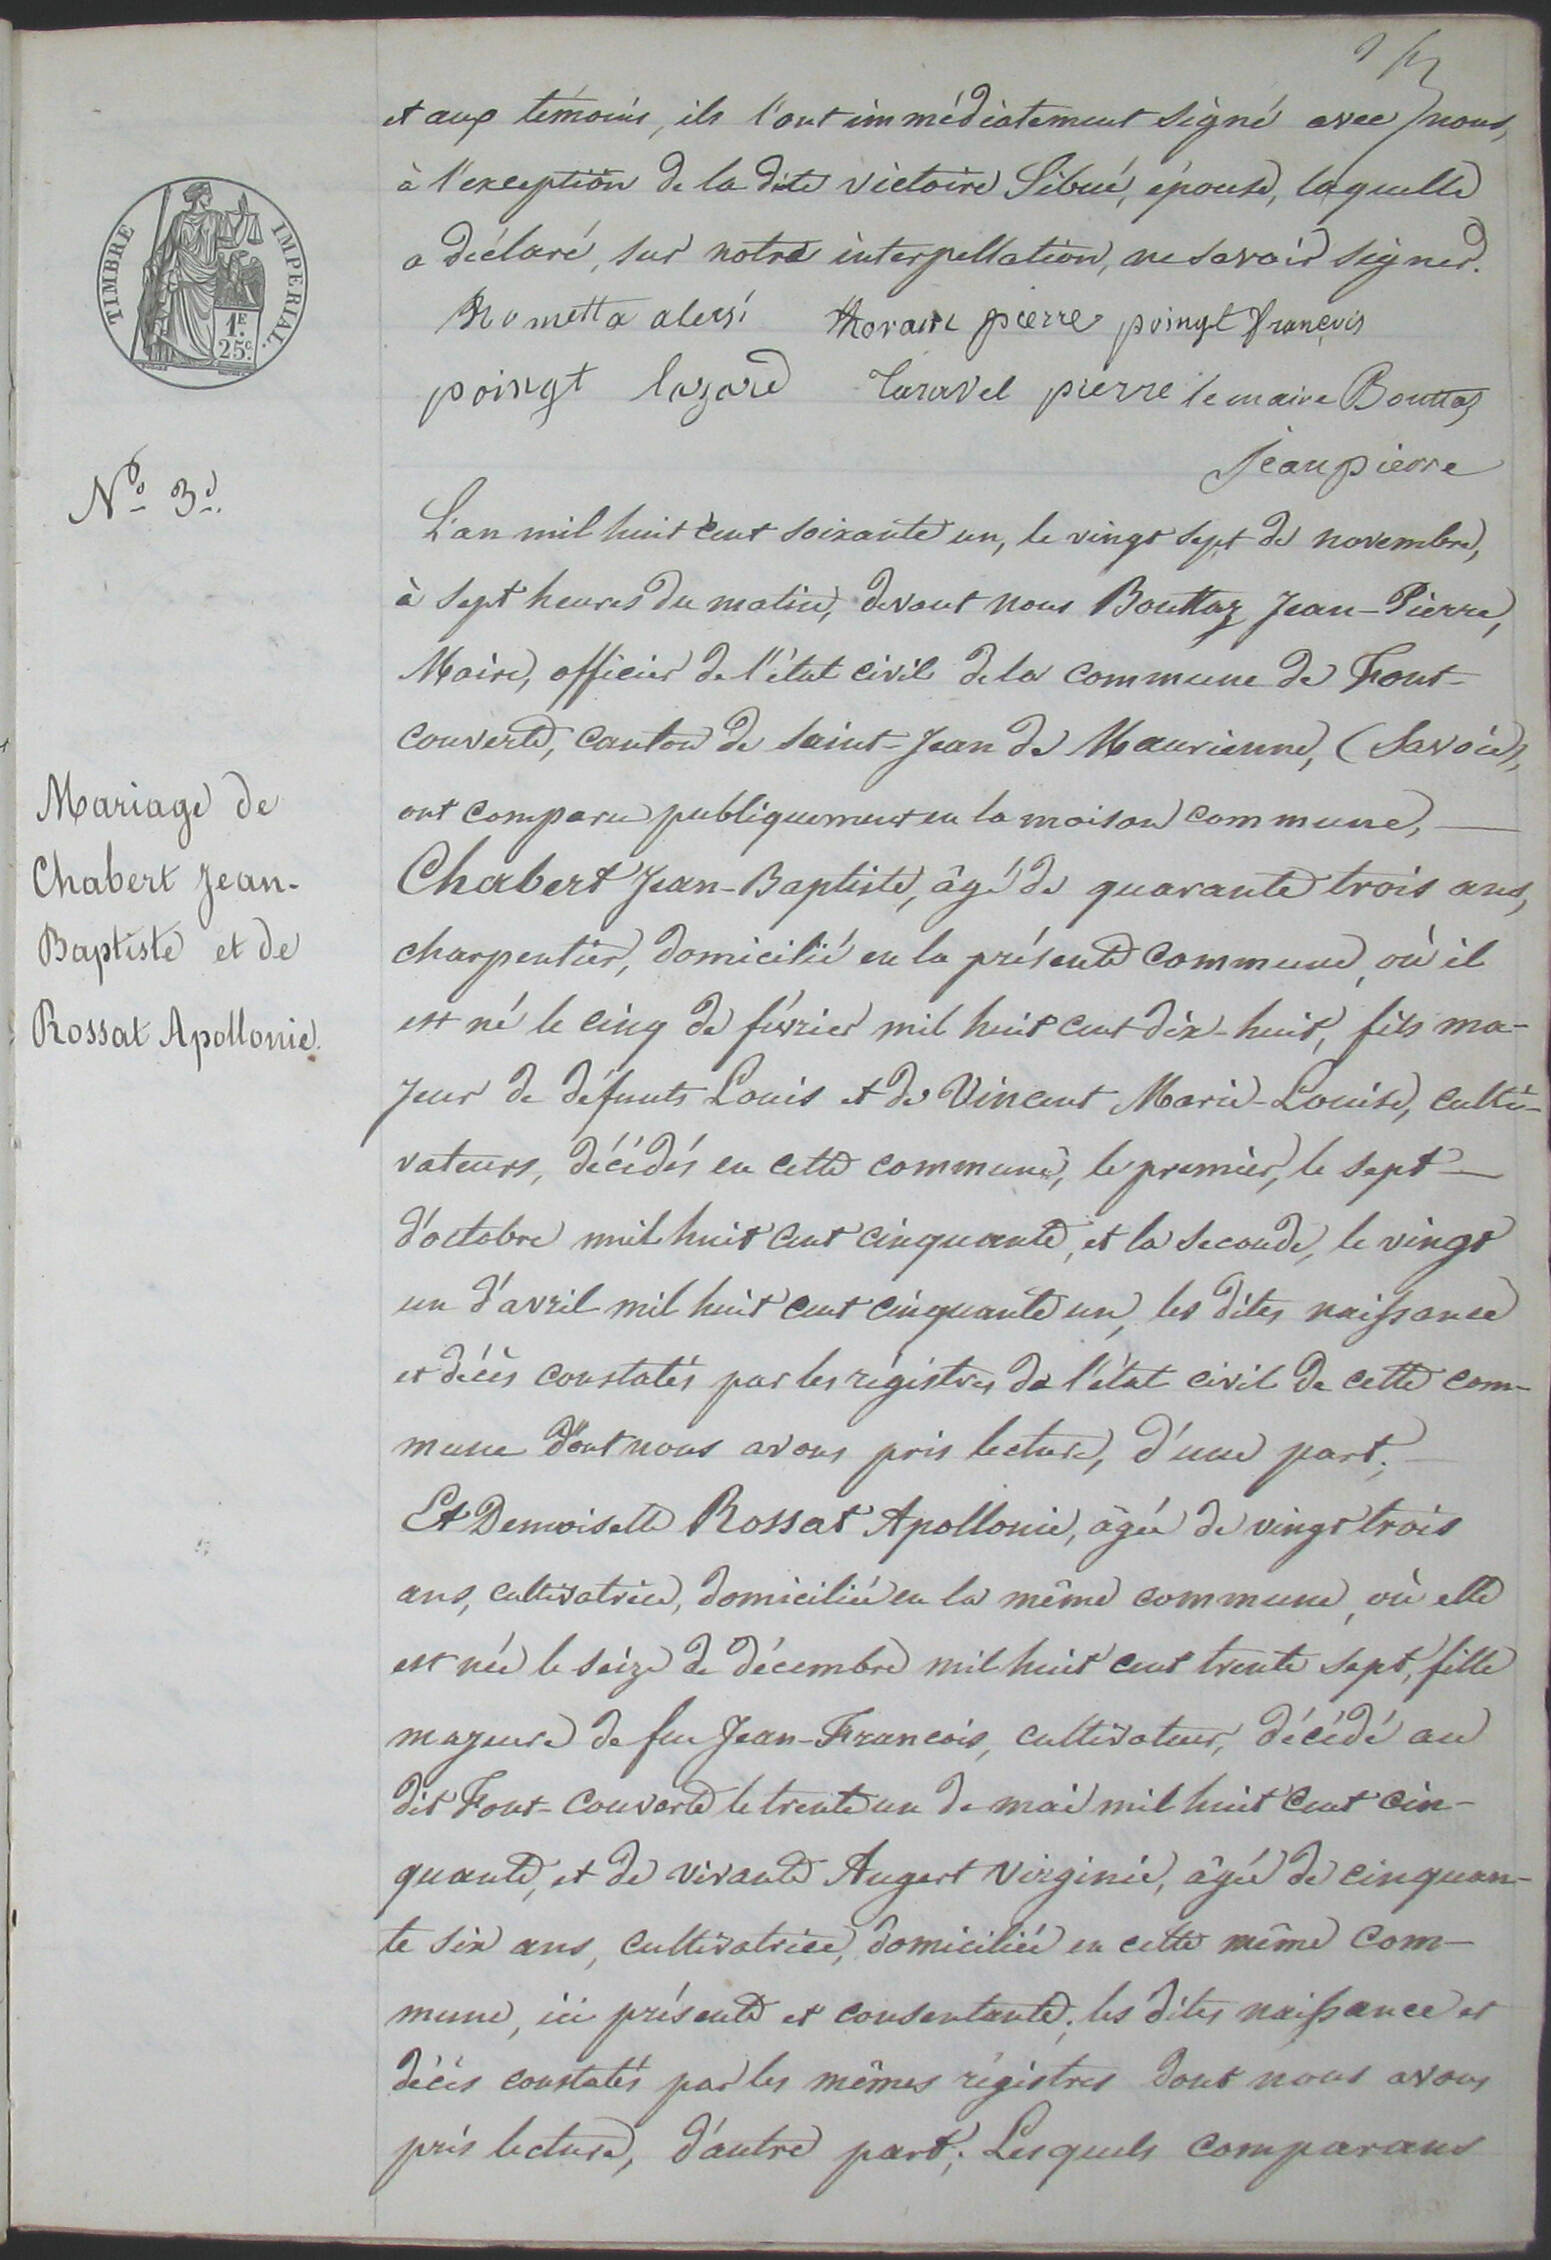 et aux témoins, ils l'ont immédiatement signé avec nous,
à l'exception de la dite victoire Sibué, épouse, laquelle
a déclaré, sur notre interpellation, ne savoir signer.
Rometta alexi thorain pierre poingt françois
poingt lazare Taravel pierre le maire Bouttaz
Jean pierre
TIMBRE IMPERIAL.
1E.
25c.
No 3.
L'an mil huit cent soixante un, le vingt sept de novembre,
à sept heures du matin, devant nous Bouttaz Jean-Pierre,
Maire, officier de l'état civil de la commune de Font-
couverte, canton de Saint-Jean de Maurienne, (Savoie),
ont comparu publiquement en la maison commune,
Mariage de
Chabert Jean-
Baptiste et de
Rossat Apollonie.
Chabert Jean-Baptiste, âgé de quarante trois ans,
charpentier, domicilié en la présente commune, où il
est né le cinq de février mil huit cent dix-huit, fils ma-
jeur de défunts Louis et de Vincent Marie-Louise, culti-
vateurs, décédés en cette commune, le premier, le sept
d'octobre mil huit cent cinquante, et la seconde, le vingt
un d'avril mil huit cent cinquante un, les dites naissance
et décès constatés par les régistres de l'état civil de cette com-
mune dont nous avons pris lecture, d'une part;
Et Demoiselle Rossat Apollonie, âgée de vingt trois
ans, cultivatrice, domiciliée en la même commune, où elle
est née le seize de décembre mil huit cent trente sept, fille
majeure de feu Jean-Francois, cultivateur, décédé au
dit Font-Couverte le trente un de mai mil huit cent cin-
quante, et de vivante Augert Virginie, âgée de cinquan-
te six ans, cultivatrice, domiciliée en cette même com-
mune, ici présente et consentante; les dites naissance et
décès constatés par les mêmes régistres dont nous avons
pris lecture, d'autre part; Lesquels comparans